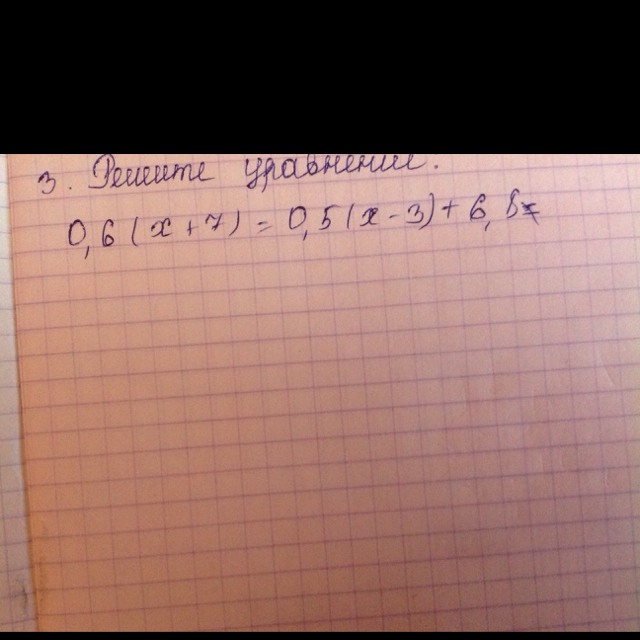 3. Решите уравнение.
0,6(x+7)=0,5(x-3)+6,8